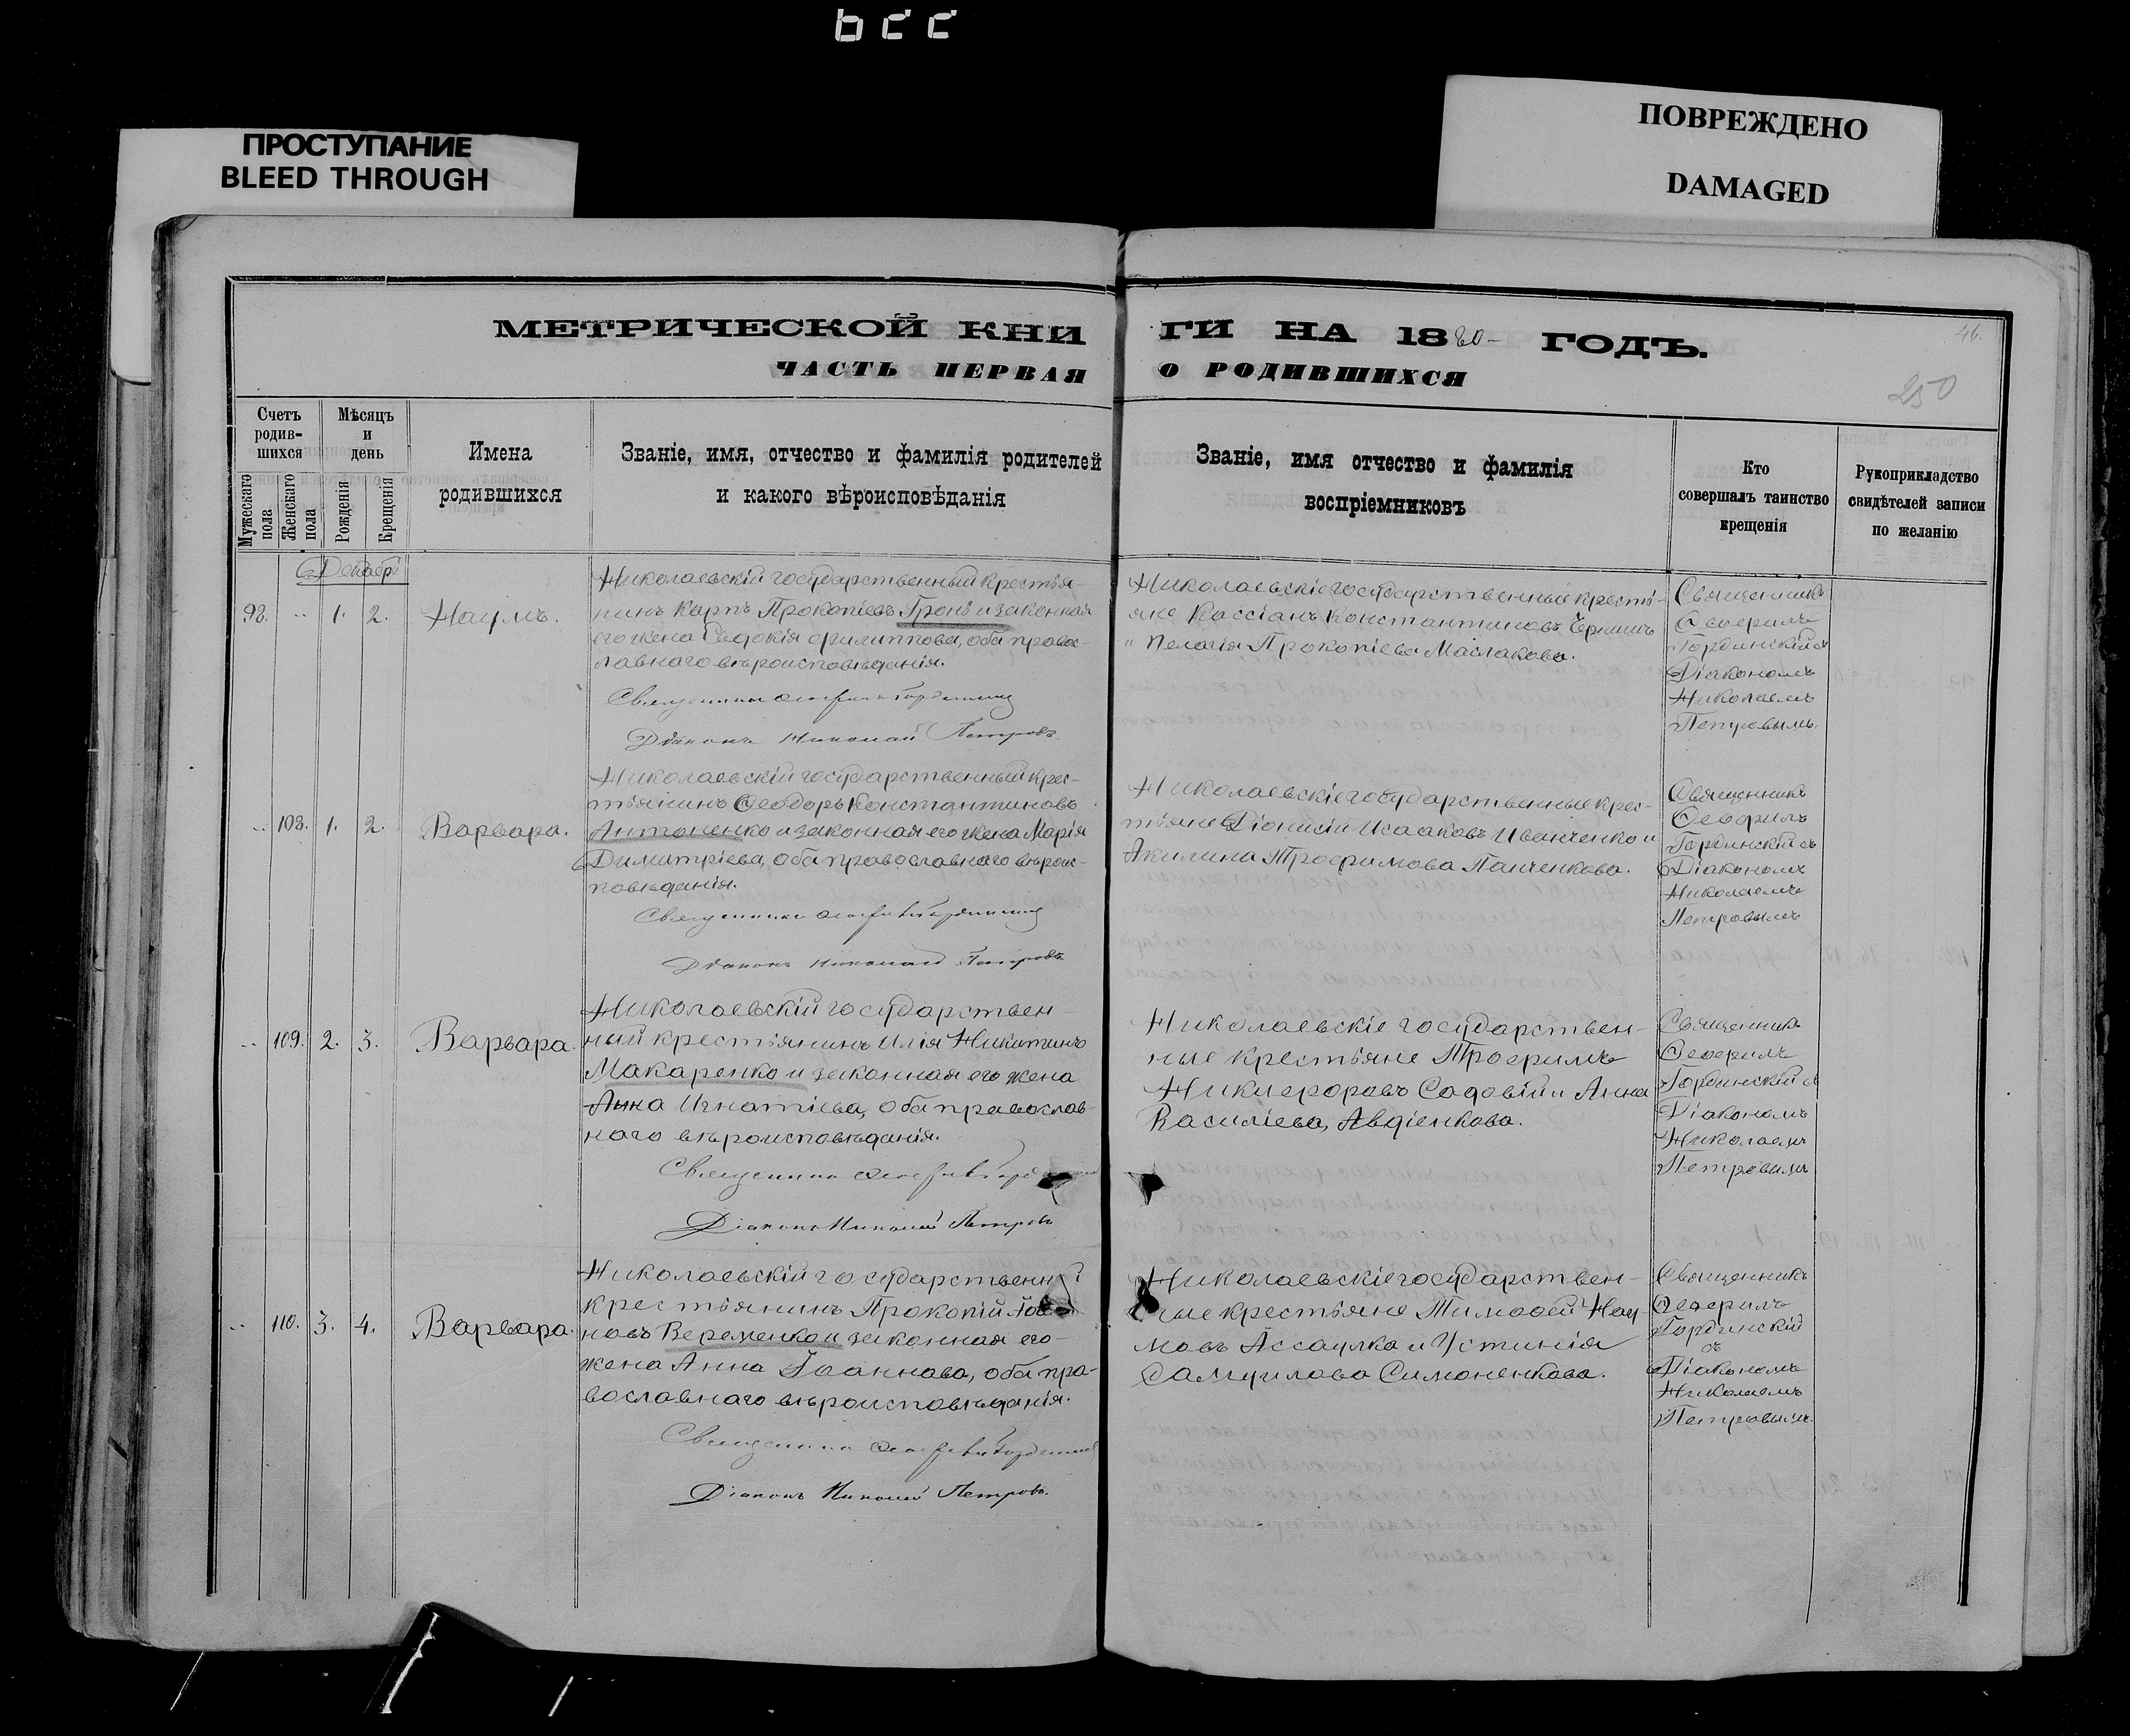 ПРОСТУПАНИЕ
BLEED THROUGH
ПОВРЕЖДЕНО
DAMAGED
МЕТРИЧЕСКОЙ КНИ
ГИ НА 1880 ГОДЪ.
46.
ЧАСТЬ ПЕРВАЯ
О РОДИВШИХСЯ
250
Счетъ
родив-
шихся
Мужескаго пола
Женскаго пола
Мѣсяцъ
и
день
Рожденія
Крещенія
Имена
родившихся
Званіе, имя, отчество и фамилія родителей
и какого вѣроисповѣданія
Званіе, имя отчество и фамилія
воспріемниковъ
Кто
совершалъ таинство
крещенія
Рукоприкладство
свидѣтелей записи
по желанію
Декабрь
98. „ 1. 2. Наумъ.
Николаевскій государственный крестья-
нинъ Карпъ Прокопіевъ и законная
его жена Евдокія Филиппова, оба правос-
лавнаго вѣроисповѣданія.
Священникъ Ѳеофилъ Гординскій
Діаконъ Николай Петровъ
Николаевскіе государственные кресть-
яне Кассіанъ Константиновъ
и Пелагія Прокопіева Маслакова.
Священникъ
Ѳеофилъ
Гординскій съ
Діакономъ
Николаемъ
Петровымъ.
„ 108. 1. 2. Варвара.
Николаевскій государственный крес-
тьянинъ Ѳеодоръ Константиновъ
Антоненко и законная его жена Марія
Димитріева, оба православнаго вѣроис-
повѣданія.
Священникъ Ѳеофилъ Гординскій
Діаконъ Николай Петровъ
Николаевскіе государственные крес-
тьяне Діонисій Исааковъ Иванченко и
Акилина Трофимова Панченкова.
Священникъ
Ѳеофилъ
Гординскій съ
Діакономъ
Николаемъ
Петровымъ
„ 109. 2. 3. Варвара.
Николаевскій государствен-
ный крестьянинъ Илія Никитинъ
Макаренко и законная его жена
Анна Игнатіева, оба православ-
наго вѣроисповѣданія.
Священникъ Ѳеофилъ
Діаконъ Николай Петровъ
Николаевскіе государствен-
ные крестьяне Трофимъ
Никифоровъ Садовій и Анна
Василіева Авдіенкова.
Священникъ
Ѳеофилъ
Гординскій съ
Діакономъ
Николаемъ
Петровымъ
„ 110. 3. 4. Варвара.
Николаевскій государственный
крестьянинъ Прокопій Іоан-
новъ Веременко и законная его
жена Анна Іоаннова, оба пра-
вославнаго вѣроисповѣданія.
Священникъ Ѳеофилъ Гординскій
Діаконъ Николай Петровъ.
Николаевскіе государствен-
ные крестьяне Тимоѳей Нау-
мовъ Ассаулко и Устинія
Самуилова Симоненкова.
Священникъ
Ѳеофилъ
Гординскій
съ
Діакономъ
Николаемъ
Петровымъ.